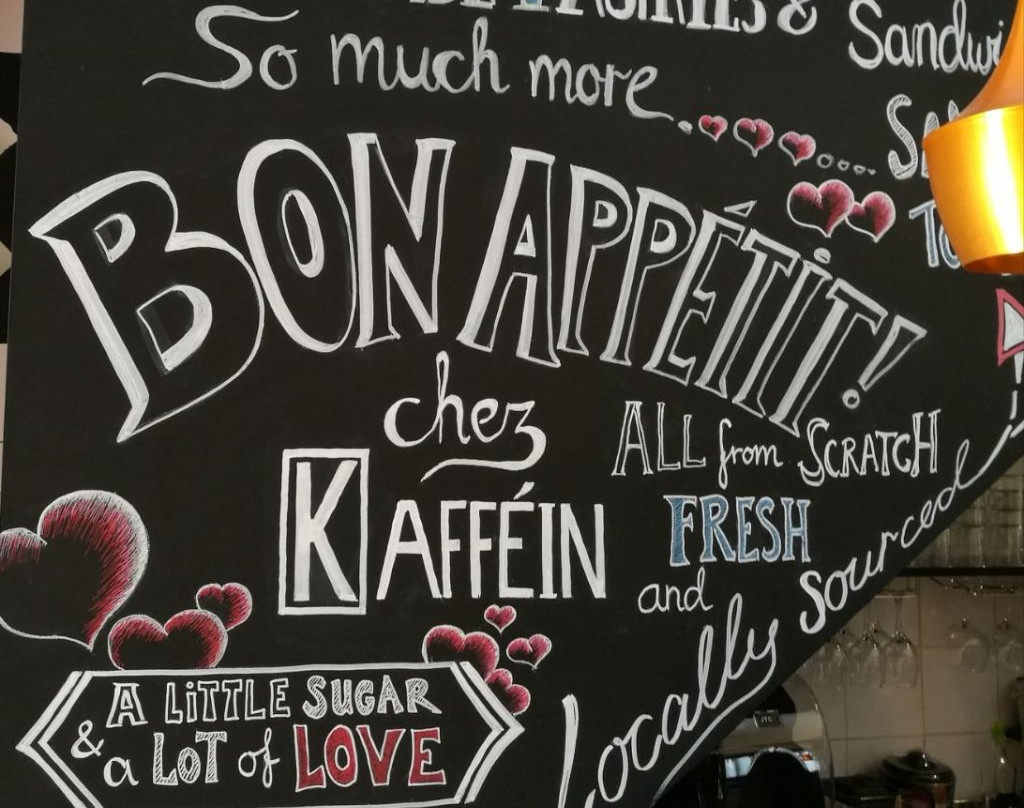 & 
Sandwi
So much more...
BON APPÉTIT!
chez
KAFFÉIN
ALL from SCRATCH
FRESH
and
locally sourced
A LiTTLE SUGAR
& a LOT of LOVE